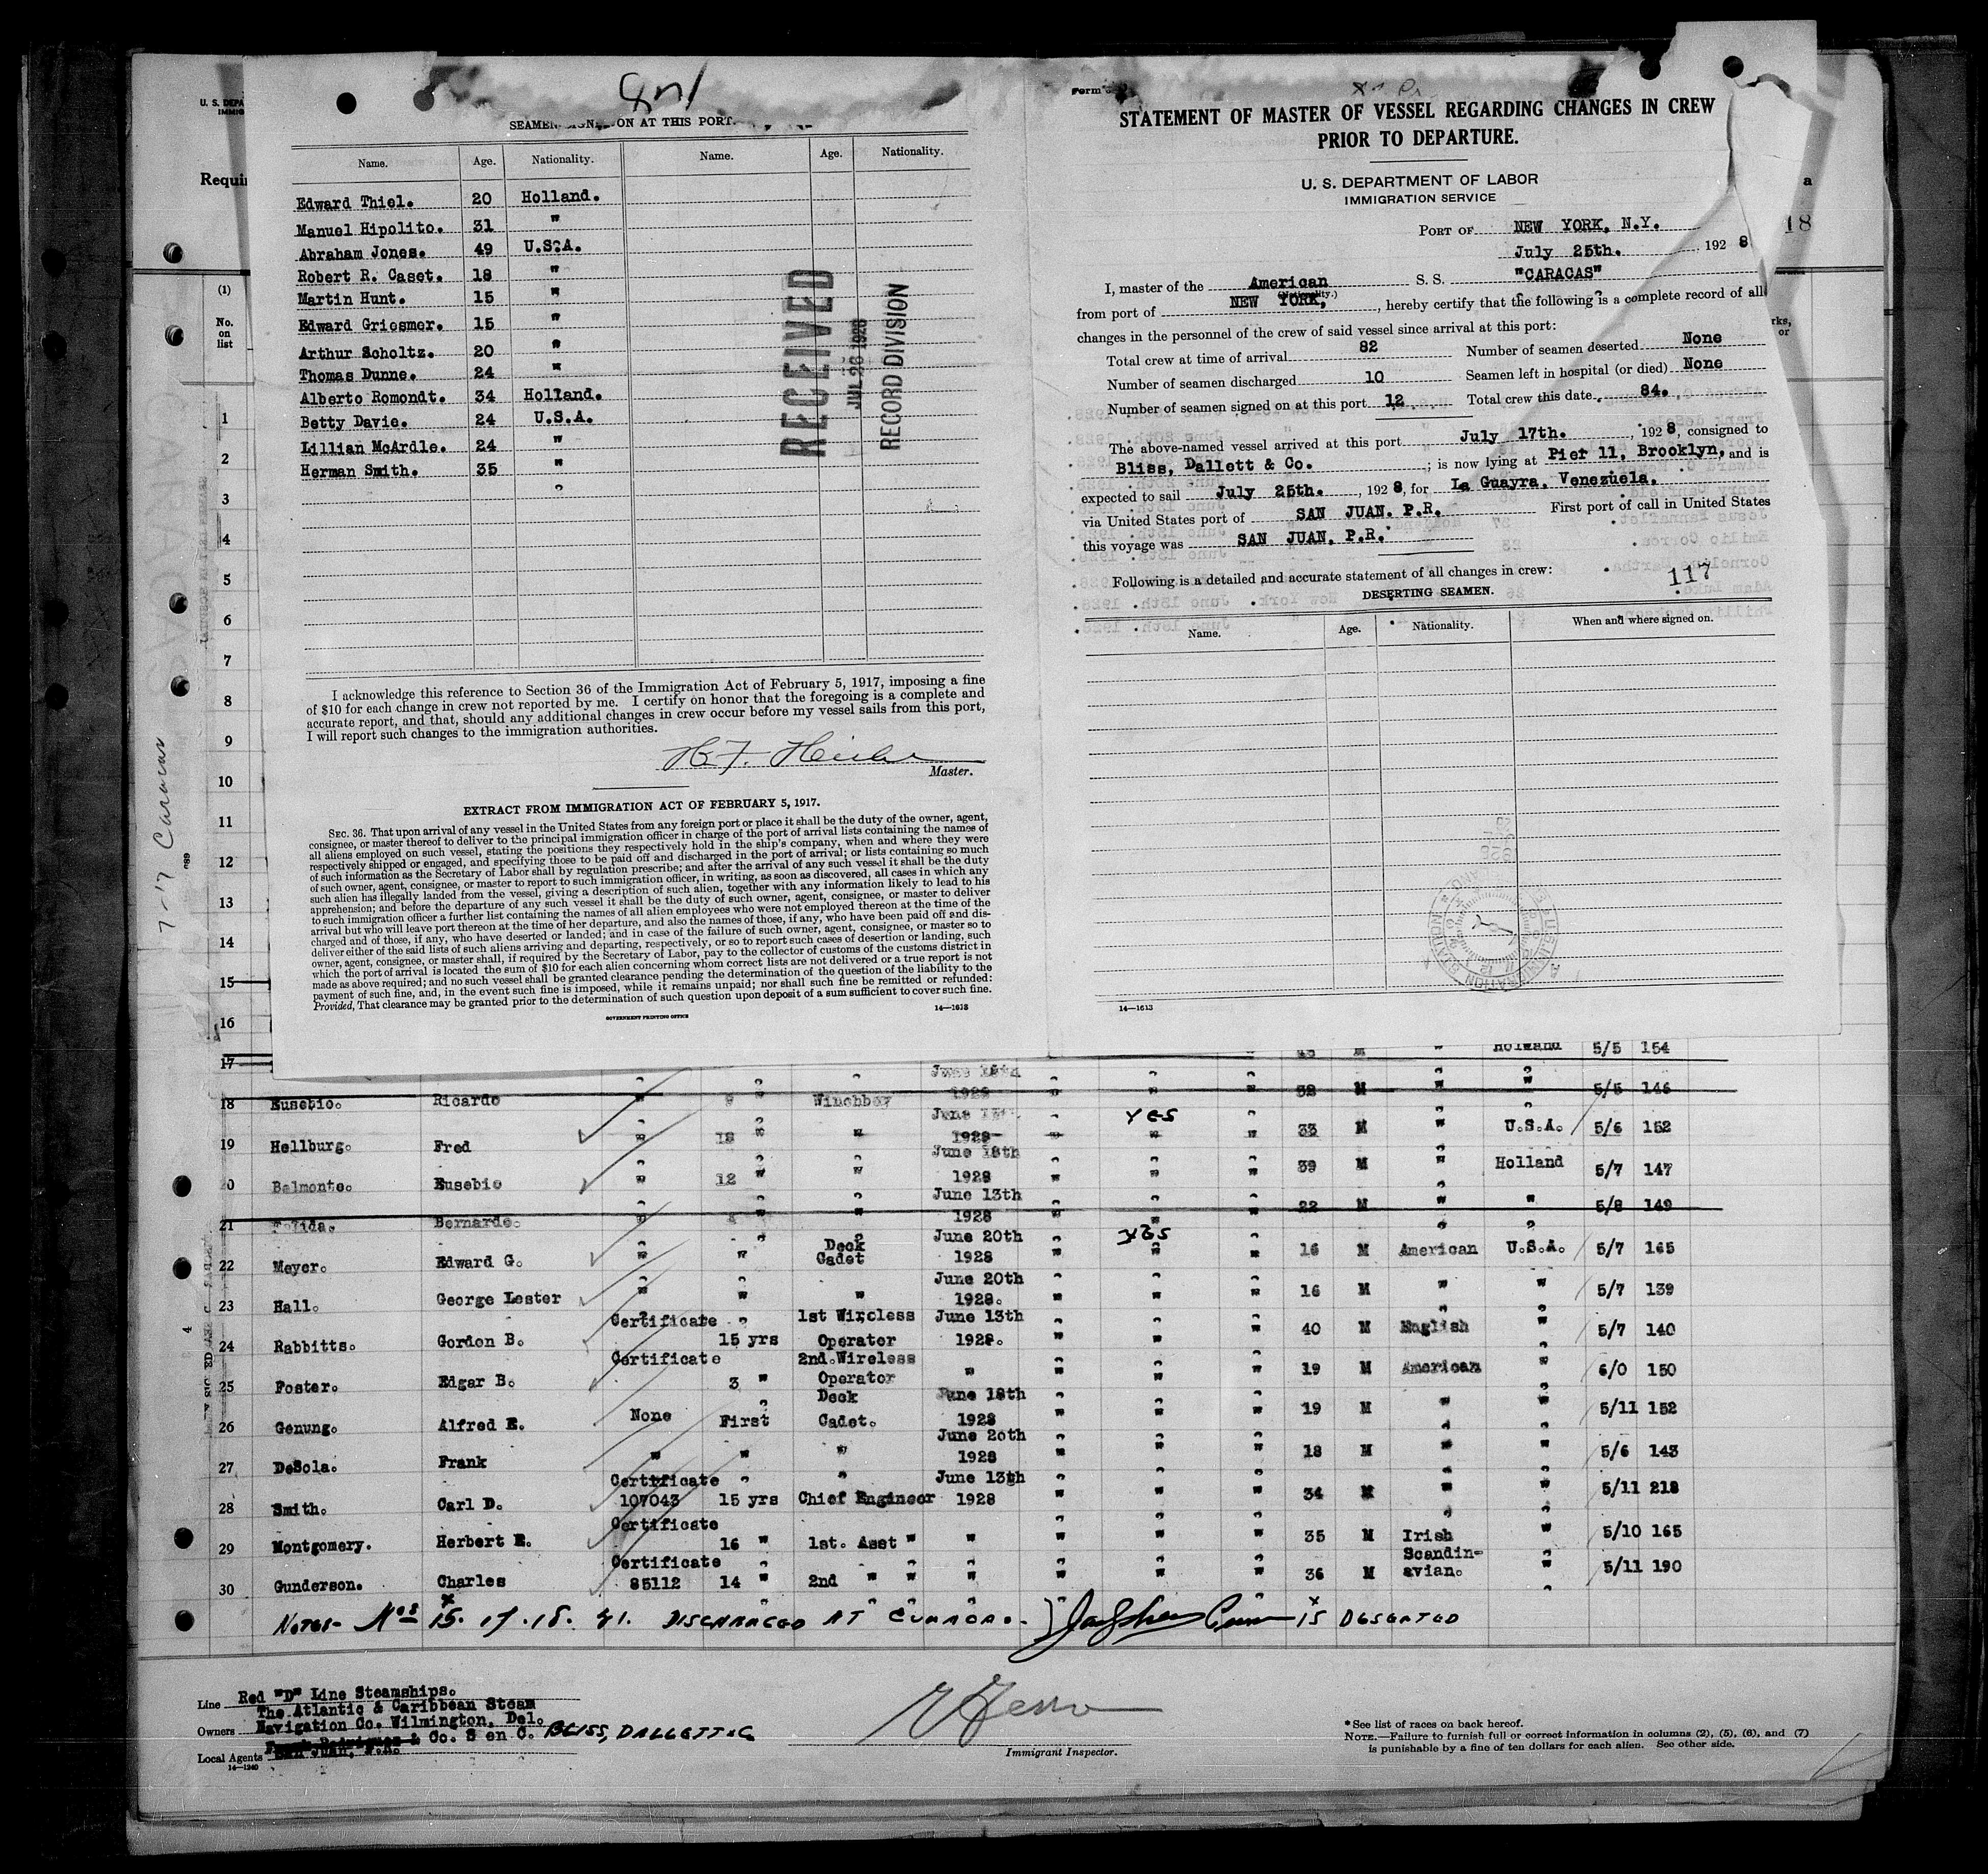 U. S. DEPA
IMMIG
Requir
(1)
No.
on
list
SEAMEN SIGNED ON AT THIS PORT.
Name. Age. Nationality. Name. Age. Nationality.
Edward Thiel. 20 Holland.
Manuel Hipolito. 31 "
Abraham Jones. 49 U.S.A.
Robert R. Caset. 18 "
Martin Hunt. 15 "
Edward Griesmer. 15 "
Arthur Scholtz. 20 "
Thomas Dunne. 24 "
Alberto Romondt. 34 Holland.
Betty Davie. 24 U.S.A.
Lillian McArdle. 24 "
Herman Smith. 35 "
RECEIVED
JUL 26 1928
RECORD DIVISION
I acknowledge this reference to Section 36 of the Immigration Act of February 5, 1917, imposing a fine
of $10 for each change in crew not reported by me. I certify on honor that the foregoing is a complete and
accurate report, and that, should any additional changes in crew occur before my vessel sails from this port,
I will report such changes to the immigration authorities.
Master.
EXTRACT FROM IMMIGRATION ACT OF FEBRUARY 5, 1917.
SEC. 36. That upon arrival of any vessel in the United States from any foreign port or place it shall be the duty of the owner, agent,
consignee, or master thereof to deliver to the principal immigration officer in charge of the port of arrival lists containing the names of
all aliens employed on such vessel, stating the positions they respectively hold in the ship's company, when and where they were
respectively shipped or engaged, and specifying those to be paid off and discharged in the port of arrival; or lists containing so much
of such information as the Secretary of Labor shall by regulation prescribe; and after the arrival of any such vessel it shall be the duty
of such owner, agent, consignee, or master to report to such immigration officer, in writing, as soon as discovered, all cases in which any
such alien has illegally landed from the vessel, giving a description of such alien, together with any information likely to lead to his
apprehension; and before the departure of any such vessel it shall be the duty of such owner, agent, consignee, or master to deliver
to such immigration officer a further list containing the names of all alien employees who were not employed thereon at the time of the
arrival but who will leave port thereon at the time of her departure, and also the names of those, if any, who have been paid off and dis-
charged and of those, if any, who have deserted or landed; and in case of the failure of such owner, agent, consignee, or master so to
deliver either of the said lists of such aliens arriving and departing, respectively, or so to report such cases of desertion or landing, such
owner, agent, consignee, or master shall, if required by the Secretary of Labor, pay to the collector of customs of the customs district in
which the port of arrival is located the sum of $10 for each alien concerning whom correct lists are not delivered or a true report is not
made as above required; and no such vessel shall be granted clearance pending the determination of the question of the liability to the
payment of such fine, and, in the event such fine is imposed, while it remains unpaid; nor shall such fine be remitted or refunded:
Provided, That clearance may be granted prior to the determination of such question upon deposit of a sum sufficient to cover such fine.
GOVERNMENT PRINTING OFFICE
14—1613
Form
STATEMENT OF MASTER OF VESSEL REGARDING CHANGES IN CREW
PRIOR TO DEPARTURE.
U. S. DEPARTMENT OF LABOR
IMMIGRATION SERVICE
PORT OF NEW YORK, N.Y.
July 25th. , 192 8
I, master of the American S. S. "CARACAS"
(Nationality.)
from port of NEW YORK, , hereby certify that the following is a complete record of all
changes in the personnel of the crew of said vessel since arrival at this port:
Total crew at time of arrival 82 Number of seamen deserted None
Number of seamen discharged 10 Seamen left in hospital (or died) None
Number of seamen signed on at this port 12 Total crew this date 84.
The above-named vessel arrived at this port July 17th. , 192 8, consigned to
Bliss, Dallett & Co. ; is now lying at Pier 11, Brooklyn, and is
expected to sail July 25th. , 192 8, for La Guayra, Venezuela.
via United States port of SAN JUAN. P.R. First port of call in United States
this voyage was SAN JUAN, P.R.
Following is a detailed and accurate statement of all changes in crew: 117
DESERTING SEAMEN.
Name. Age. Nationality. When and where signed on.
14—1613
a
18
rks,
or
7-17 Caracas
1
2
3
4
5
6
7
8
9
10
11
12
13
14
15
16
17 Holland 5/5 154
18 Eusebio. Ricardo " " Winchboy 1928 " " " 32 M " " 5/5 146
19 Hellburg. Fred " 18 " " 1928 " YES " 33 M " U.S.A. 5/6 152
20 Balmonte. Eusebio " 12 " " June 18th 1928 " " " 39 M " Holland 5/7 147
21 Bernardo. " " June 13th 1928 " " 22 M " " 5/8 149
22 Meyer. Edward G. " " Deck Cadet June 20th 1928 " YES " 16 M American U.S.A. 5/7 165
23 Hall. George Lester " " " June 20th 1928. " " " 16 M " " 5/7 139
24 Rabbitts. Gordon B. Certificate 15 yrs 1st Wireless Operator June 13th 1928. " " " 40 M English " 5/7 140
25 Foster. Edgar B. Certificate 3 " 2nd. Wireless Operator " " " " 19 M American " 6/0 150
26 Genung. Alfred E. None First Deck Cadet. June 18th 1928 " " " 19 M " " 5/11 152
27 DeSola. Frank " " " June 20th 1928 " " " 18 M " " 5/6 143
28 Smith. Carl D. Certificate 107043 15 yrs Chief Engineer June 13th 1928 " " " 34 M " " 5/11 218
29 Montgomery. Herbert E. Certificate 16 " 1st. Asst " " " " " 35 M Irish " 5/10 165
30 Gunderson. Charles Certificate 85112 14 " 2nd " " " " " " 36 M Scandin-avian. " 5/11 190
NOTES- Nos 15. 17. 18. 21. DISCHARGED AT CURACAO. 15 DESERTED
Line Red "D" Line Steamships.
The Atlantic & Caribbean Steam
Owners Navigation Co. Wilmington, Del.
Co. S en C. BLISS, DALLETT & C
Local Agents San Juan, P.R.
14—1240
Immigrant Inspector.
* See list of races on back hereof.
NOTE.—Failure to furnish full or correct information in columns (2), (5), (6), and (7)
is punishable by a fine of ten dollars for each alien. See other side.